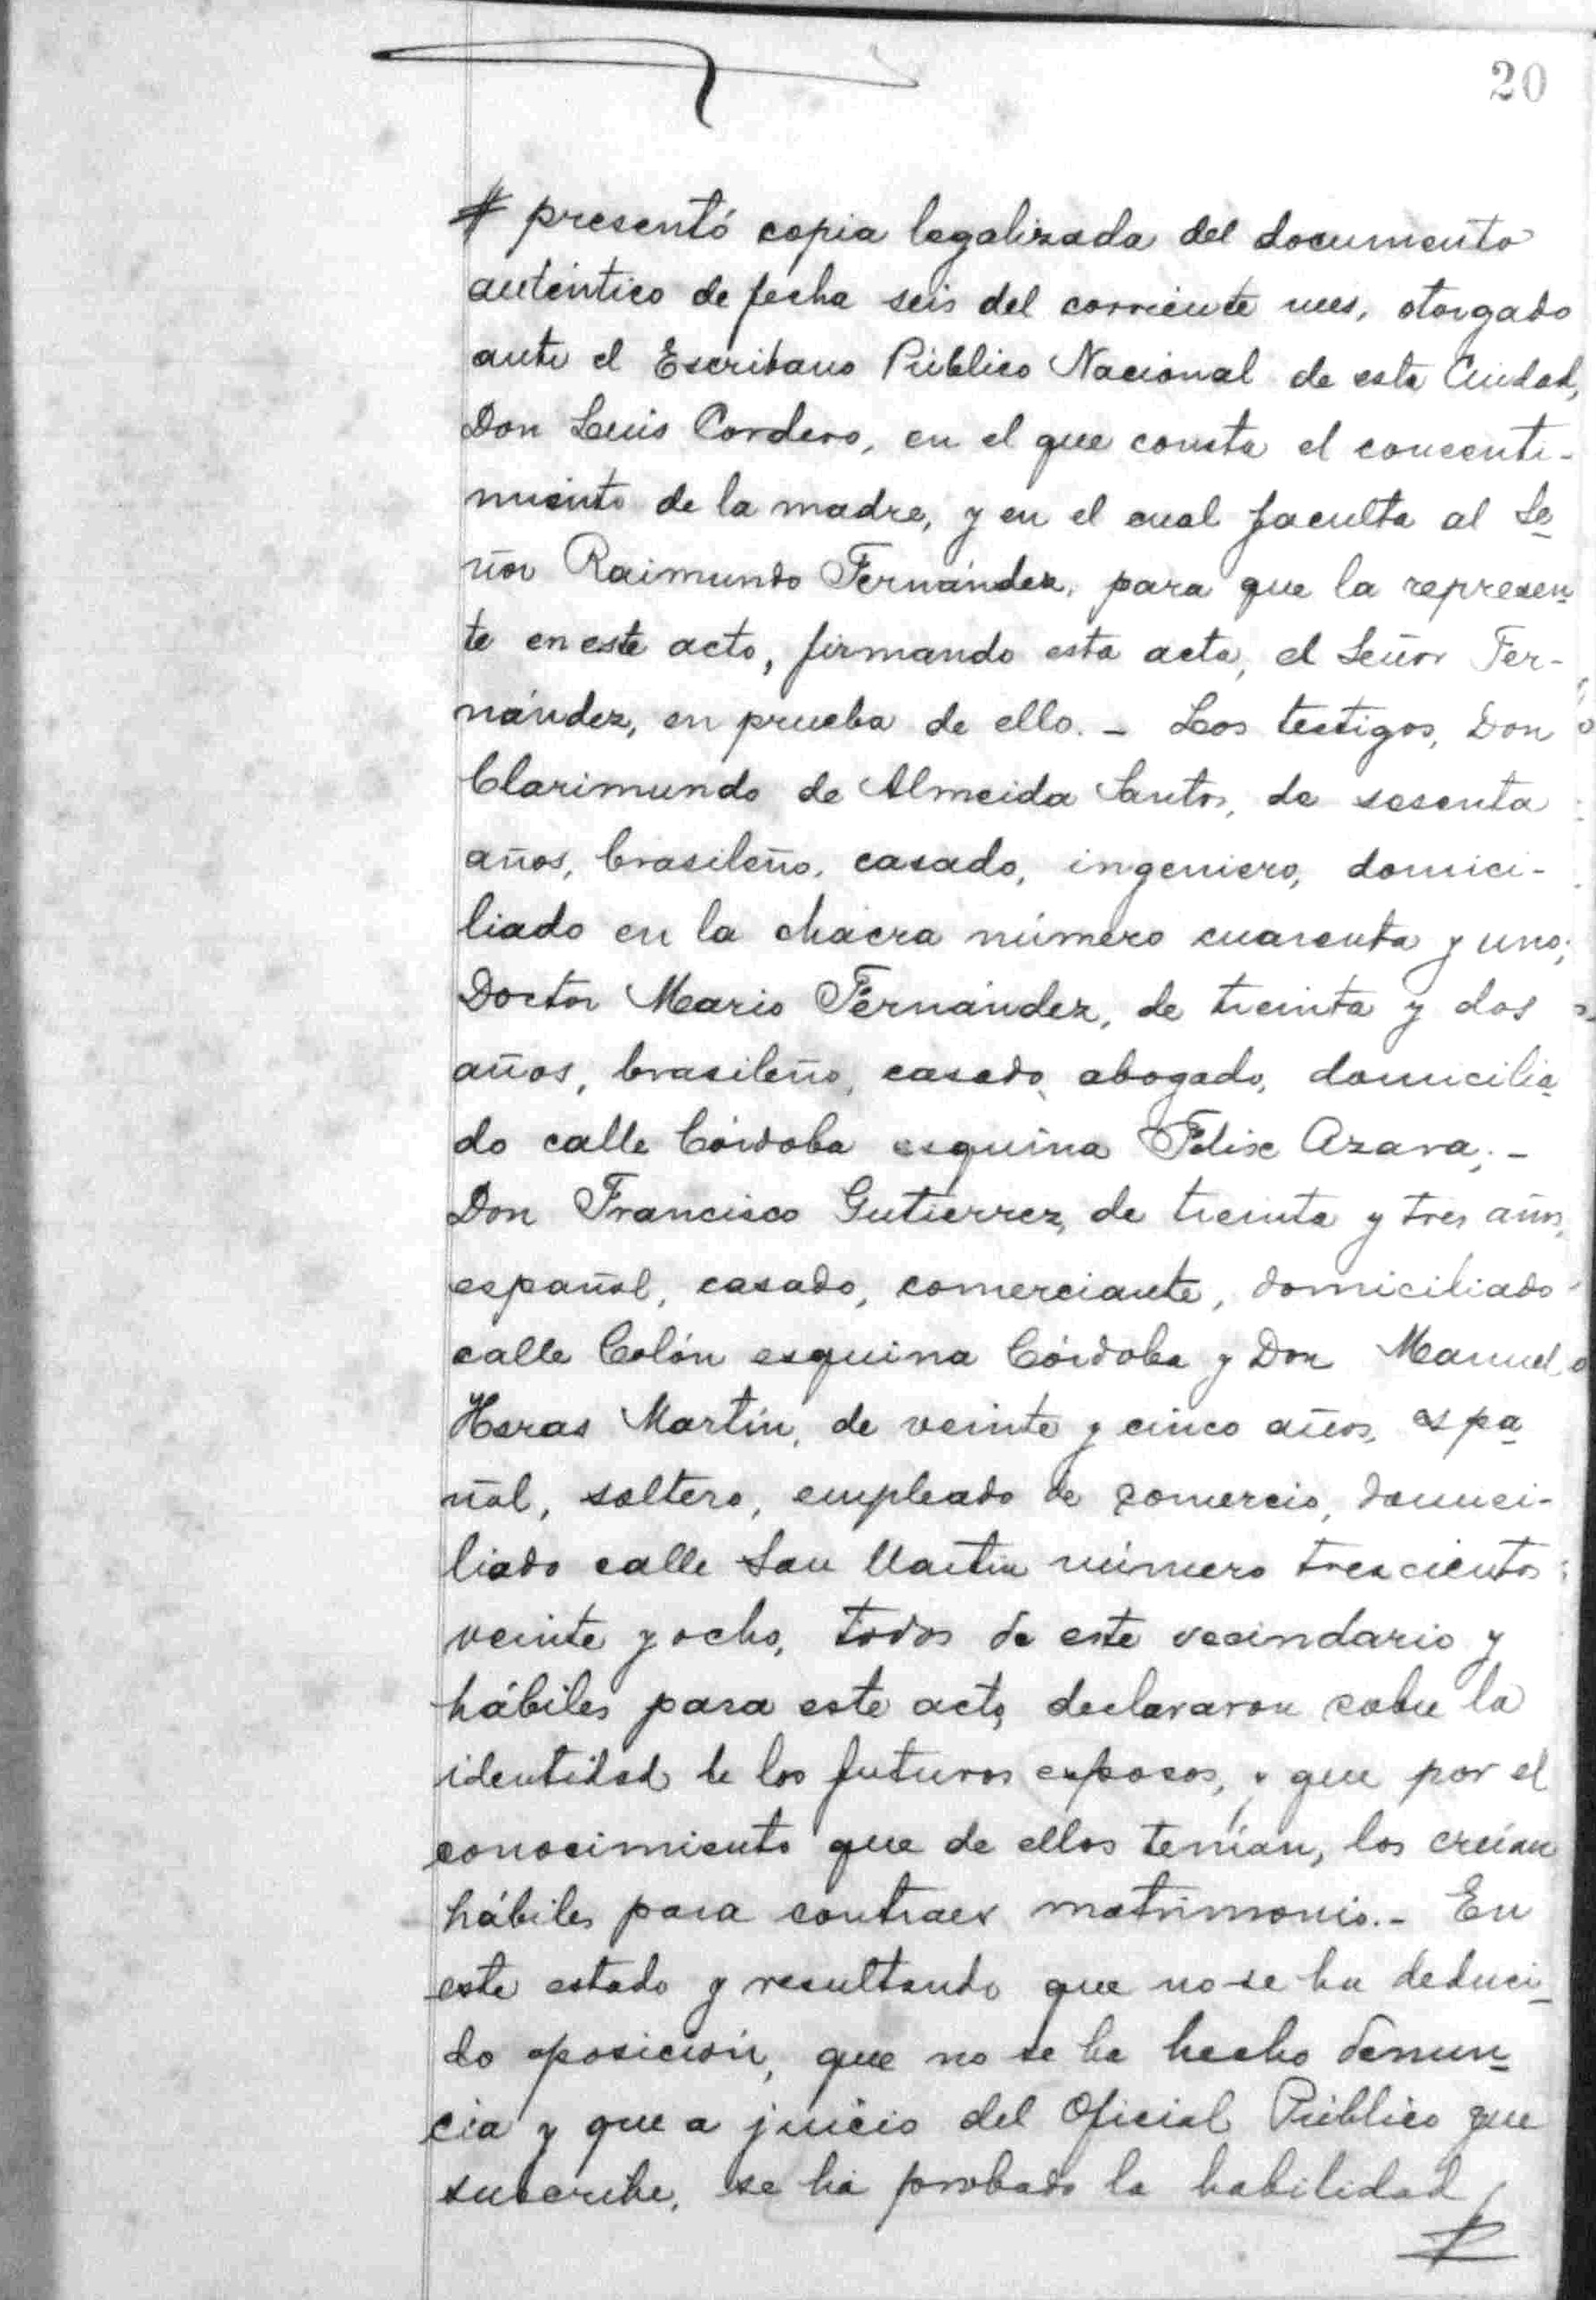 20
# presentó copia legalizada del documento
auténtico de fecha seis del corriente mes, otorgado
ante el Escribano Público Nacional de esta Ciudad,
Don Luis Cordero, en el que consta el concenti-
miento de la madre, y en el cual faculta al Se
ñor Raimundo Fernández, para que la represen
te en este acto, firmando esta acta, el Señor Fer-
nández, en prueba de ello. - Los testigos, Don
Clarimundo de Almeida Santos, de sesenta
años, brasileño, casado, ingeniero, domici-
liado en la chacra número cuarenta y uno;
Doctor Mario Fernández, de treinta y dos
años, brasileño, casado, abogado, domicilia
do calle Córdoba esquina Felix Azara; -
Don Francisco Gutierrez, de treinta y tres años,
español, casado, comerciante, domiciliado
calle Colón esquina Córdoba y Don Manuel
Heras Martín, de veinte y cinco años, espa
ñol, soltero, empleado de comercio, domici-
liado calle San Martin número trescientos
veinte y ocho, todos de este vecindario y
hábiles para este acto, declararon sobre la
identidad de los futuros esposos, y que por el
conocimiento que de ellos tenían, los creían
hábiles para contraer matrimonio. - En
este estado y resultando que no se ha deduci
do oposición, que no se ha hecho denun
cia y que a juicio del Oficial Público que
suscribe, se ha probado la habilidad
#